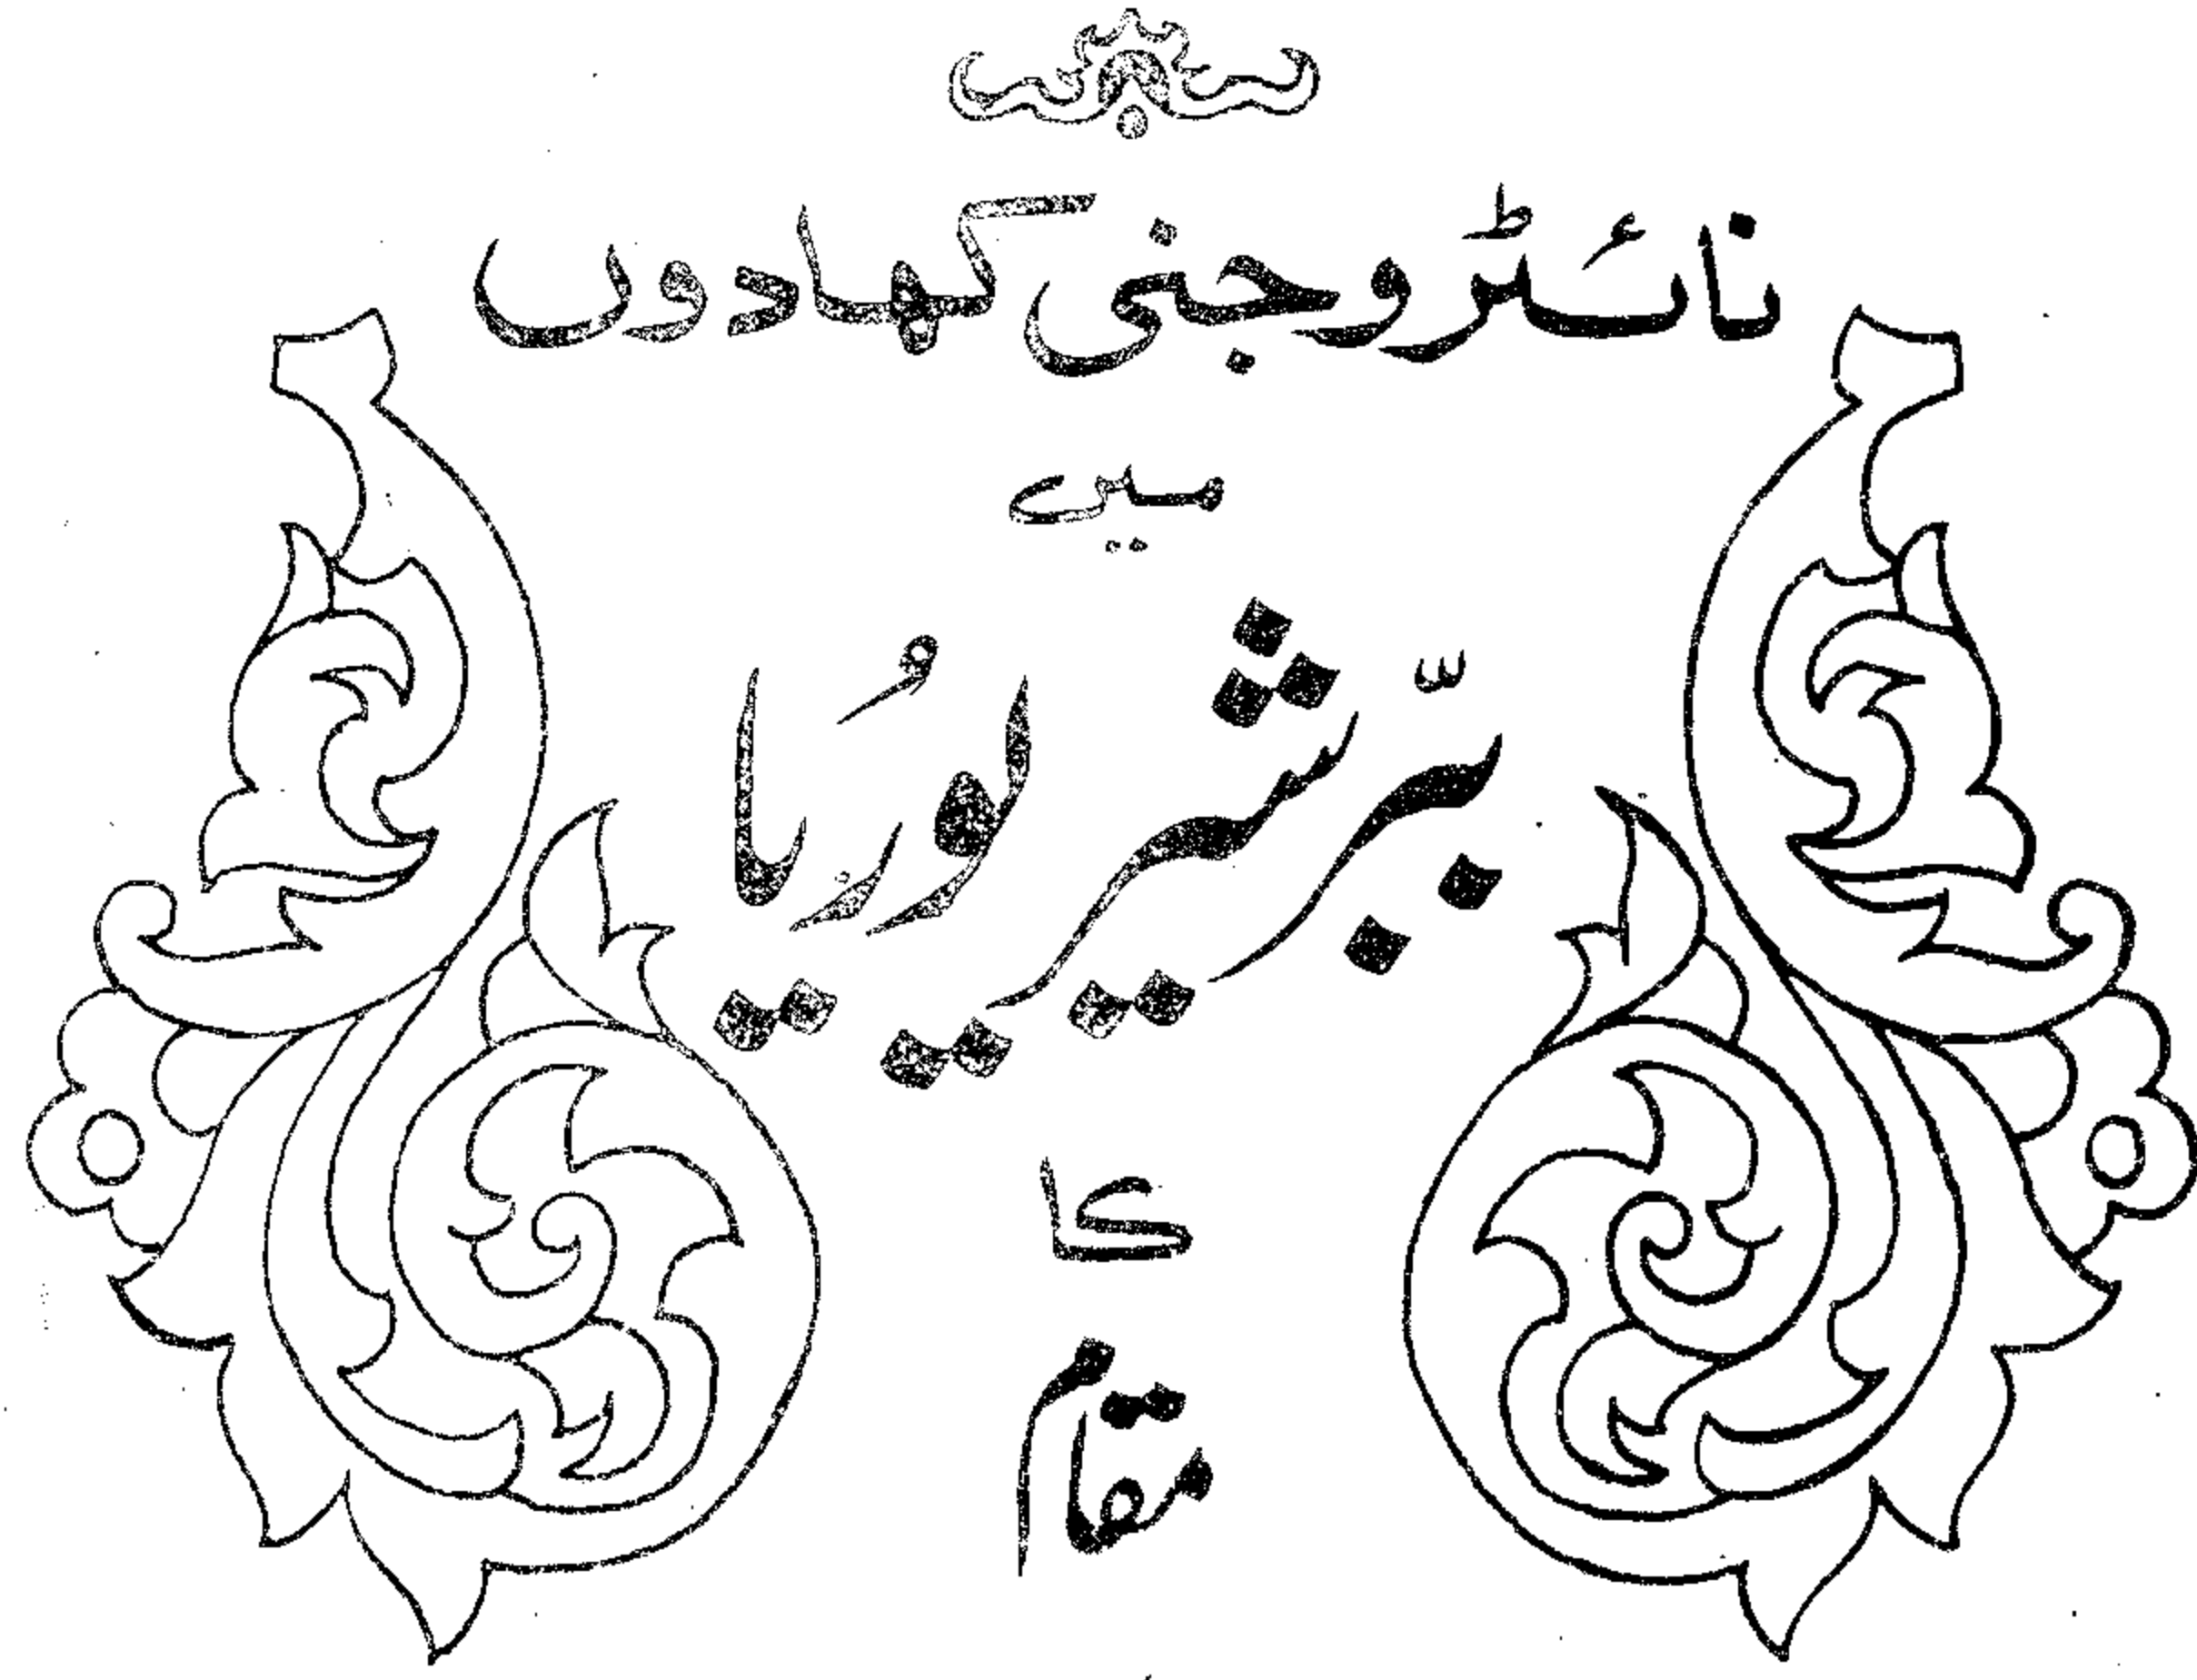 نائٹروجنی کھادوں
میں
ببّر شیر یُوریا
کا
مقام